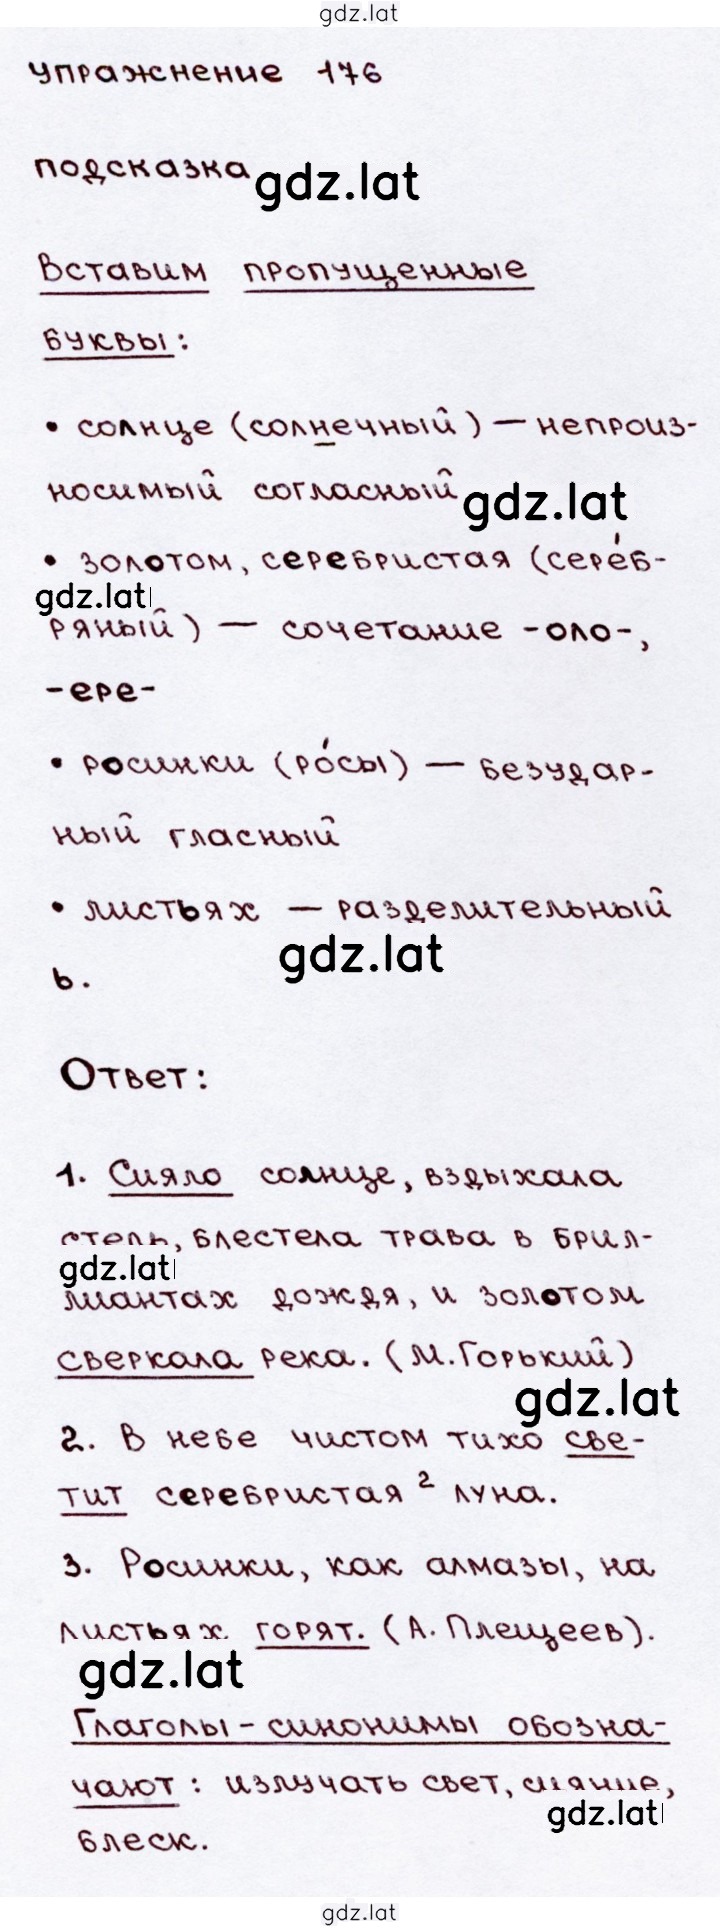 gdz.lat
упражнение 176
подсказка gdz.lat
Вставим пропущенные
буквы:
• солнце (солнечный) — непроиз-
носимый согласный gdz.lat
• золотом, серебристая (серéб-
gdz.lat
ряный) — сочетание -оло-,
-ере-
• росинки (рóсы) — безудар-
ный гласный
• листьях — разделительный
gdz.lat
ь.
Ответ:
1. Сияло солнце, вздыхала
степь, блестела трава в брил-
gdz.lat
лиантах дождя, и золотом
сверкала река. (М.Горький)
gdz.lat
2. В небе чистом тихо све-
тит серебристая ² луна.
3. Росинки, как алмазы, на
листьях горят. (А. Плещеев).
gdz.lat
Глаголы-синонимы обозна-
чают: излучать свет, сияние,
gdz.lat
блеск.
gdz.lat